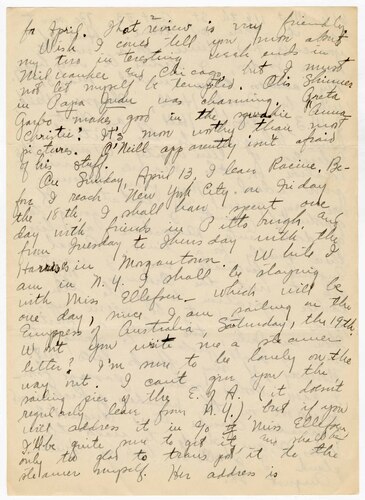 for April. That review is very friendly.
Wish I could tell you more about
my two interesting week-ends in
Milwaukee and Chicago, but I must
not let myself be tempted. Otis Skinner
in Papa Juan was charming. Greta
Garbo makes good in the squalid "Anna
Christie". It's more worthy than most
pictures. O'Neill apparently isn't afraid
of his stuff.
On Sunday, April 13, I leave Racine. Be-
fore I reach New York City on Friday
the 18th, I shall have spent one
day with friends in Pittsburgh, and
from Tuesday to Thursday with the
in Morgantown. While I
am in N.Y. I shall be staying
with Miss Ellefson - which will be
one day, since I am sailing on the
Empress of Australia, Saturday, the 19th.
Won't you write me a steamer
letter? I'm sure to be lonely on the
way out. I can't give you the
sailing pier of the E. of A. (it doesn't
regularly leave from N.Y.), but if you
will address it in c/o of Miss Ellefson
I'll be quite sure to get it
only too glad to transport it to the
steamer myself. Her address is